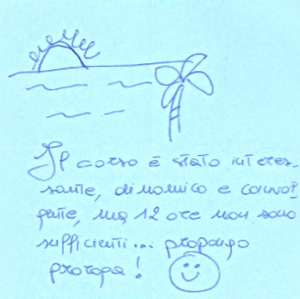 Il corso è stato interes-
sante, dinamico e coinvol
gente, ma 12 ore non sono
sufficienti... propongo
proroga!